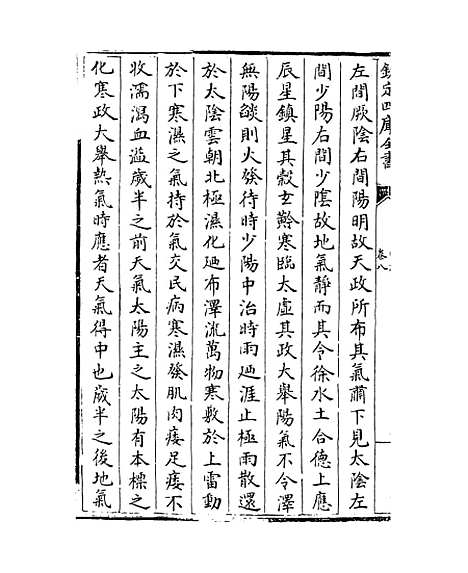 欽定四庫全書
卷八
左間厥陰右間陽明故天政所布其氣肅下見太陰左
間少陽右間少陰故地氣靜而其令徐水土合德上應
辰星鎮星其穀玄黅寒臨太虛其政大舉陽氣不令澤
無陽燄則火發待時少陽中治時雨廼涯止極雨散還
於太陰雲朝北極濕化廼布澤流萬物寒敷於上雷動
於下寒濕之氣持於氣交民病寒濕發肌肉痿足痿不
收濡瀉血溢歲半之前天氣太陽主之太陽有本標之
化寒政大舉熱氣時應者天氣得中也歲半之後地氣